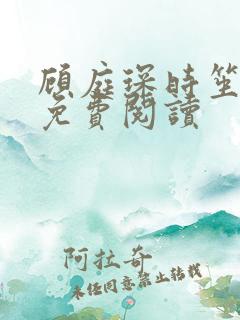 顾庭琛时笙
免費閱讀
阿拉奇
未经同意禁止转载